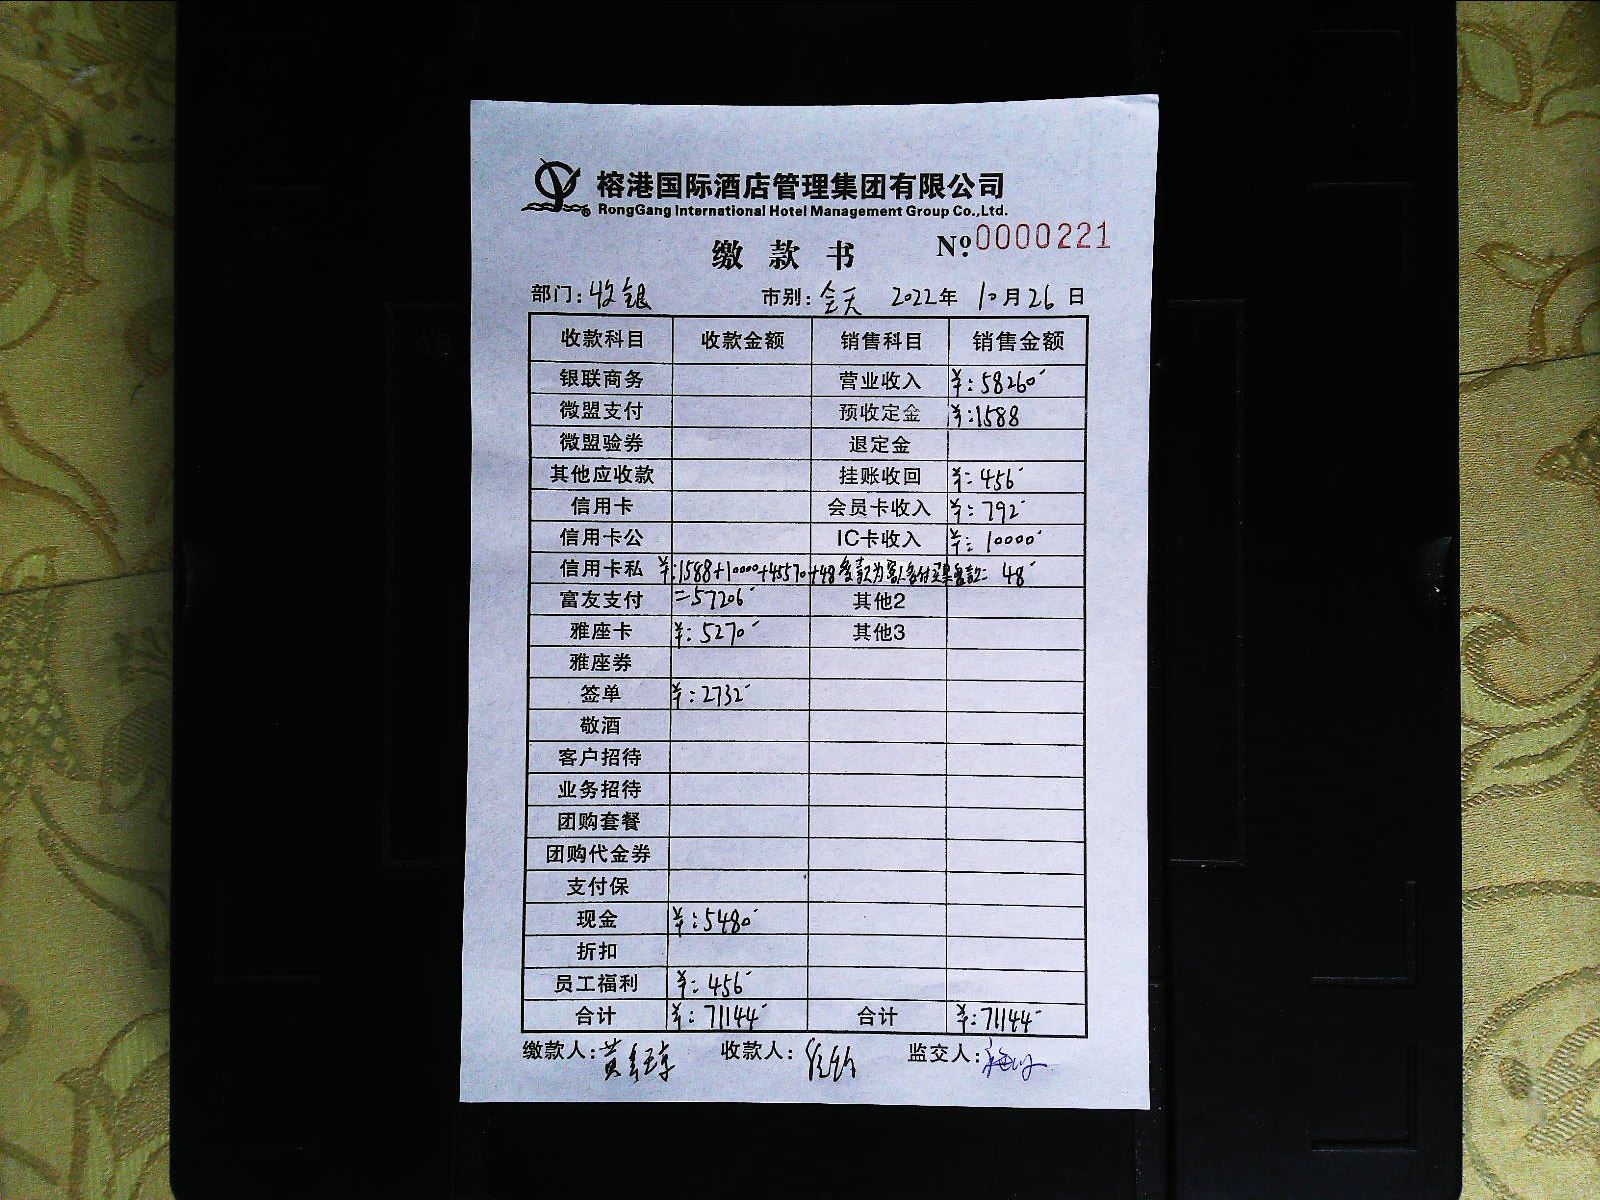 榕港国际酒店管理集团有限公司
RongGang International Hotel Management Group Co.,Ltd.
缴款书 №0000221
部门:收银 市别:全天 2022年10月26日
收款科目 收款金额 销售科目 销售金额
银联商务 营业收入 ¥:58260
微盟支付 预收定金 ¥:1588
微盟验券 退定金
其他应收款 挂账收回 ¥:456
信用卡 会员卡收入 ¥:792
信用卡公 IC卡收入 ¥:10000
信用卡私 ¥:1588+10000+45570+48 款为客人 48
富友支付 =57206 其他2
雅座卡 ¥:5270 其他3
雅座券
签单 ¥:2732
敬酒
客户招待
业务招待
团购套餐
团购代金券
支付保
现金 ¥:5480
折扣
员工福利 ¥:456
合计 ¥:71144 合计 ¥:71144
缴款人:黄 收款人: 监交人: